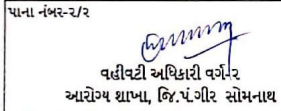 પાના નંબર-૨/૨
વહીવટી અધિકારી વર્ગ-૨
આરોગ્ય શાખા, જિ.પં.ગીર સોમનાથ